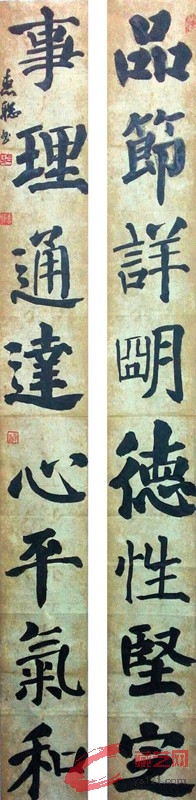 品節詳朙德性堅定
事理通達心平氣和